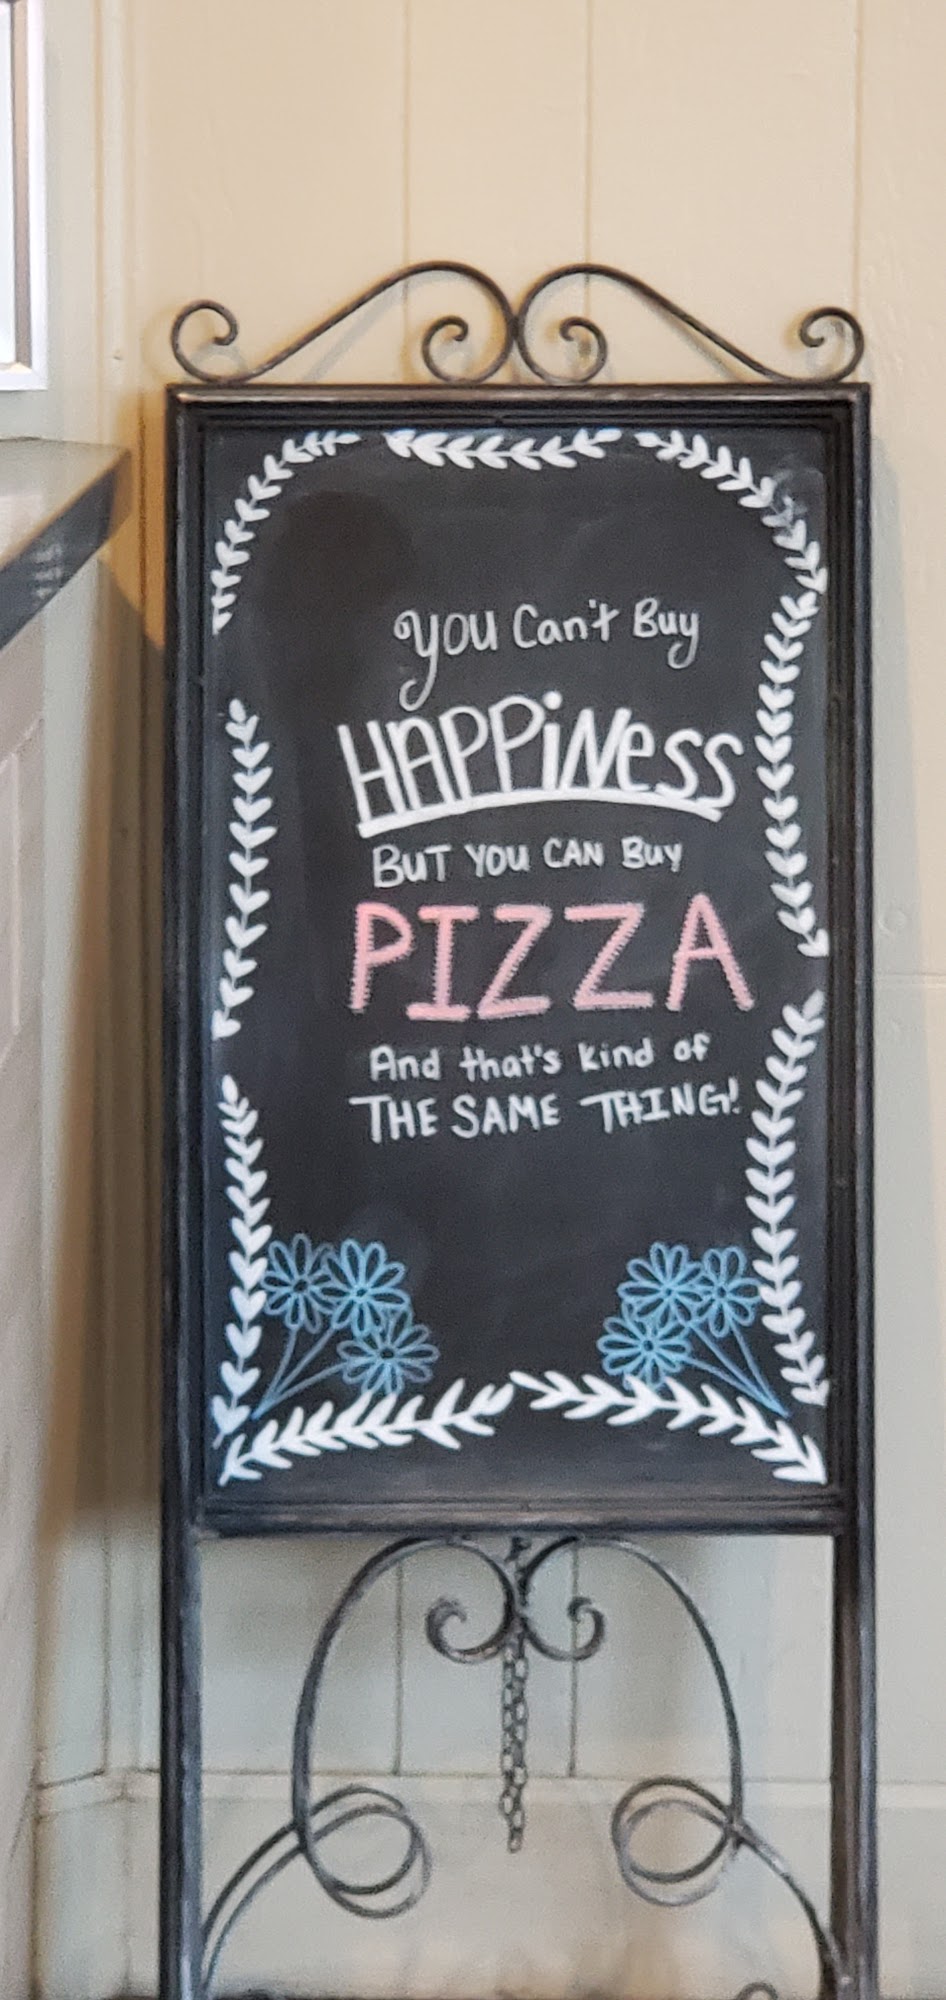 You Can't Buy
HAPPiNeSS
BuT YOU CAN Buy
PIZZA
And that's kind of
THE SAME THING!